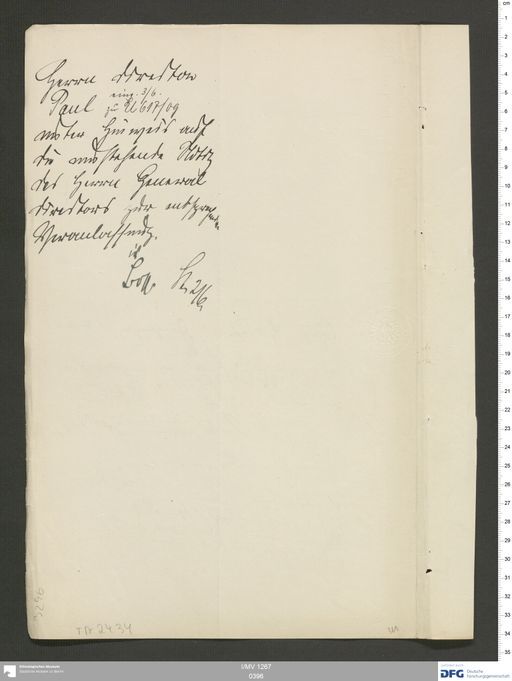 Herrn Direktor
Paul eing. 3/6.
zu 2 617/09
unter Hinweis auf
die umstehende Notiz
des Herrn General
direktors zur entsprechenden
Veranlassung.
TA 2434
I/MV 1267
0396
Ethnologisches Museum
Staatliche Museen zu Berlin
DFG Deutsche
Forschungsgemeinschaft
cm
1
2
3
4
5
6
7
8
9
10
11
12
13
14
15
16
17
18
19
20
21
22
23
24
25
26
27
28
29
30
31
32
33
34
35